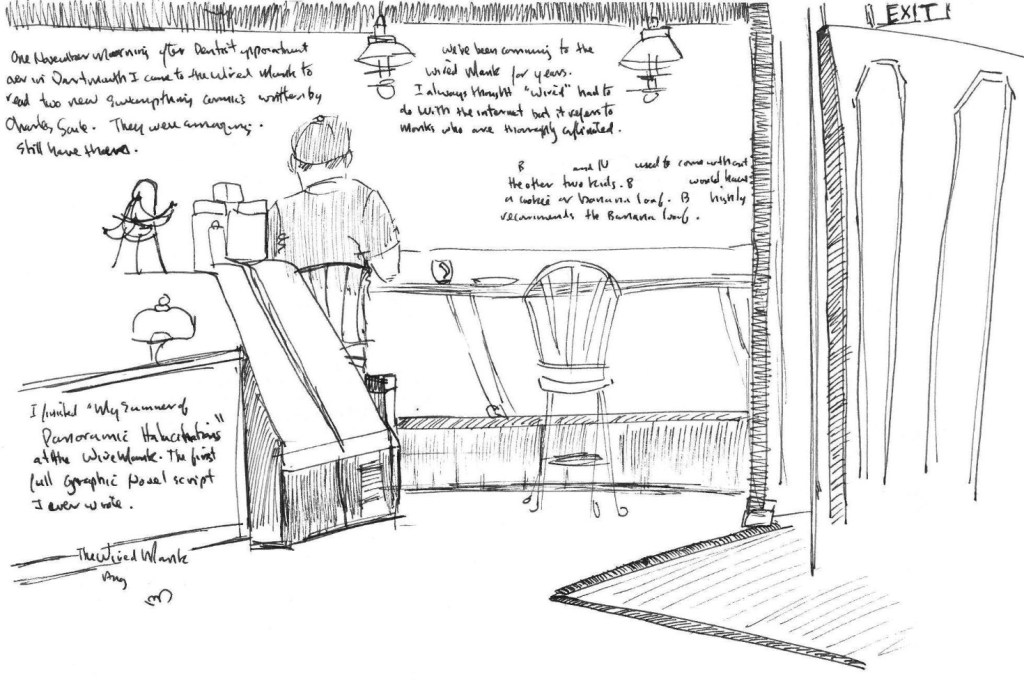 EXIT
One November Morning after Dentist appointment
over in Dartmouth I came to the Wired Monk to
read two new Swampthing comics written by
Charles Soule. They were amazing.
Still have them.
We've been coming to the
Wired Monk for years.
I always thought "Wired" had to
do with the internet but it refers to
Monks who are thoroughly caffeinated.
B and N used to come without
the other two kids. B would have
a cookie or banana loaf. B highly
recommends the Banana loaf.
I finished "My Summer of
Panoramic Halucinations"
at the Wire Monk. The first
full Graphic Novel script
I ever wrote.
The Wired Monk
Aug